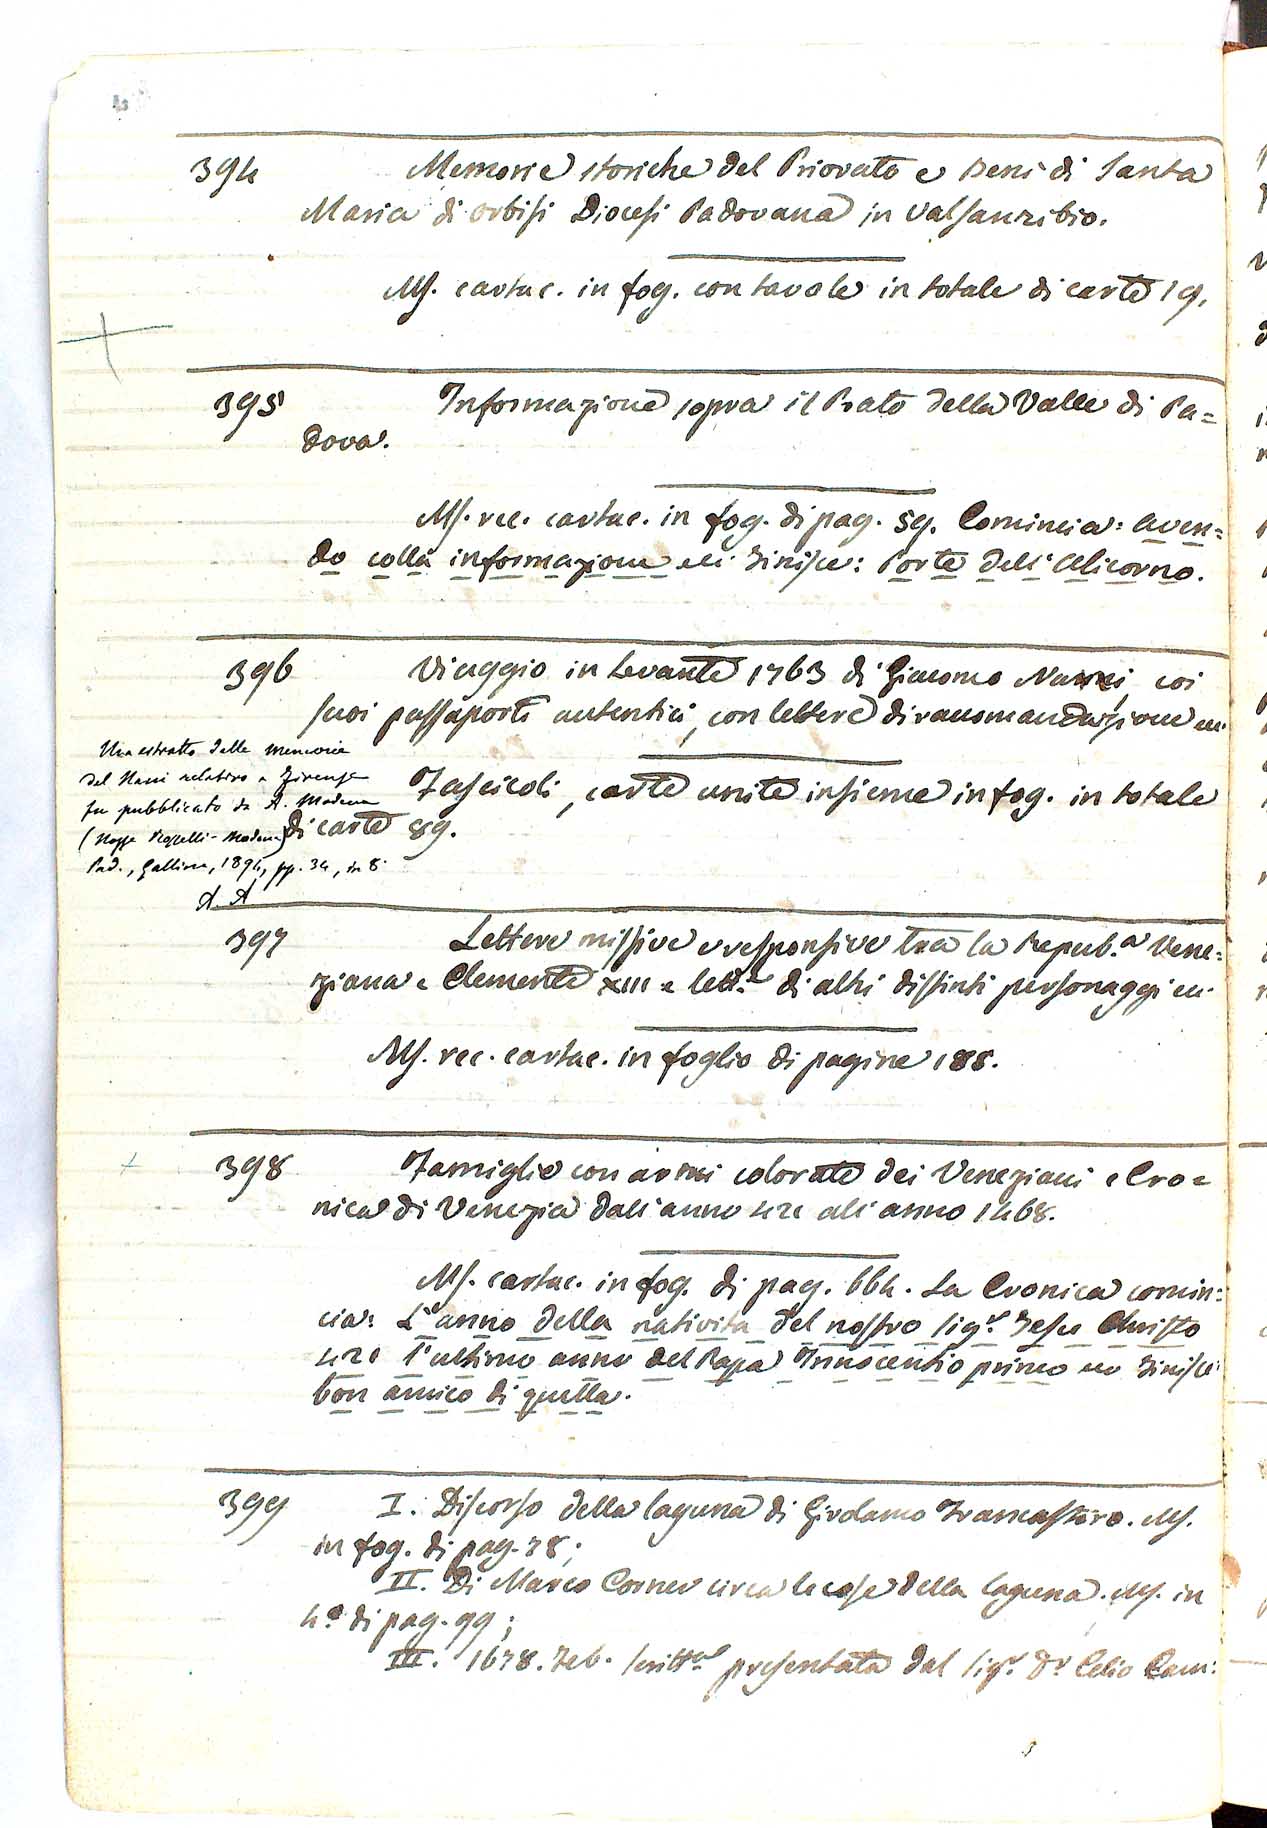 394 Memorie storiche del Priorato e Beni di Santa
Maria di Orbisi Diocesi Padovana in Valsanzibio.
Ms. cartac. in fog. con tavole in totale di carte 19.
395 Informazione sopra il Prato della Valle di Pa=
dova.
Ms. rec. cartac. in fog. di pag. 59. Comincia: Aven=
do colla informazione ecc. Finisce: Porte dell'Alicorno.
396 Viaggio in Levante 1763 di Giacomo Nani, coi
suoi passaporti autentici, con lettere di raccomandazione ecc.
Fascicoli, carte unite insieme in fog. in totale
di carte 89.
Un estratto delle memorie
del Nani relativo a Firenze
fu pubblicato da A. Medin
(Nozze
Pad., Gallina, 1894, pp. 34, in 8°
A. A
397 Lettere missive e responsive tra la Repub.a Vene=
ziana e Clemente XIII e lett.e di altri distinti personaggi ecc.
Ms. rec. cartac. in foglio di pagine 188.
398 Famiglie con armi colorate dei Veneziani e Cro=
nica di Venezia dall'anno 421 all'anno 1468.
Ms. cartac. in fog. di pag. 664. La Cronica comin=
cia: L'anno della natività del nostro sigr. Jesu Christo
421 l'ultimo anno del Papa Innocentio primo ecc Finisce:
bon amico di quella.
399 I. Discorso della laguna di Girolamo Fracastoro. Ms.
in fog. di pag. 78;
II. Di Marco Corner circa le cose della laguna. Ms. in
4° di pag. 99;
III. 1678. Feb. scritta presentata dal sigr. Dr. Celio Cam: